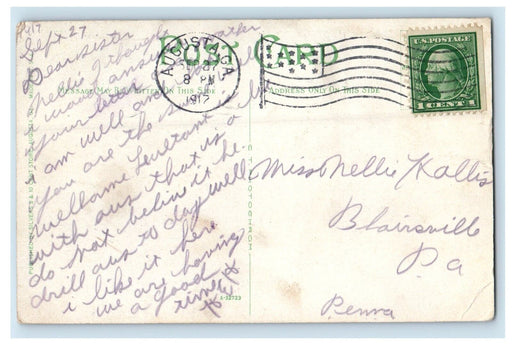 Sept 27
POST CARD
AUGUSTA, GA.
8 PM
1917
U.S. POSTAGE
1 CENT 1
MESSAGE MAY BE WRITTEN ON THIS SIDE
ADDRESS ONLY ON THIS SIDE
Dear sister
nellie I thought
i would answer
your letter
am well and
you are the same
wellcome Leuetant
with aus that is a
do not beliu it he
drill aus to day well
i like it here
we are having
a good
time
Miss Nellie Kallis
Blairsville
Pa
Penna
A-32723